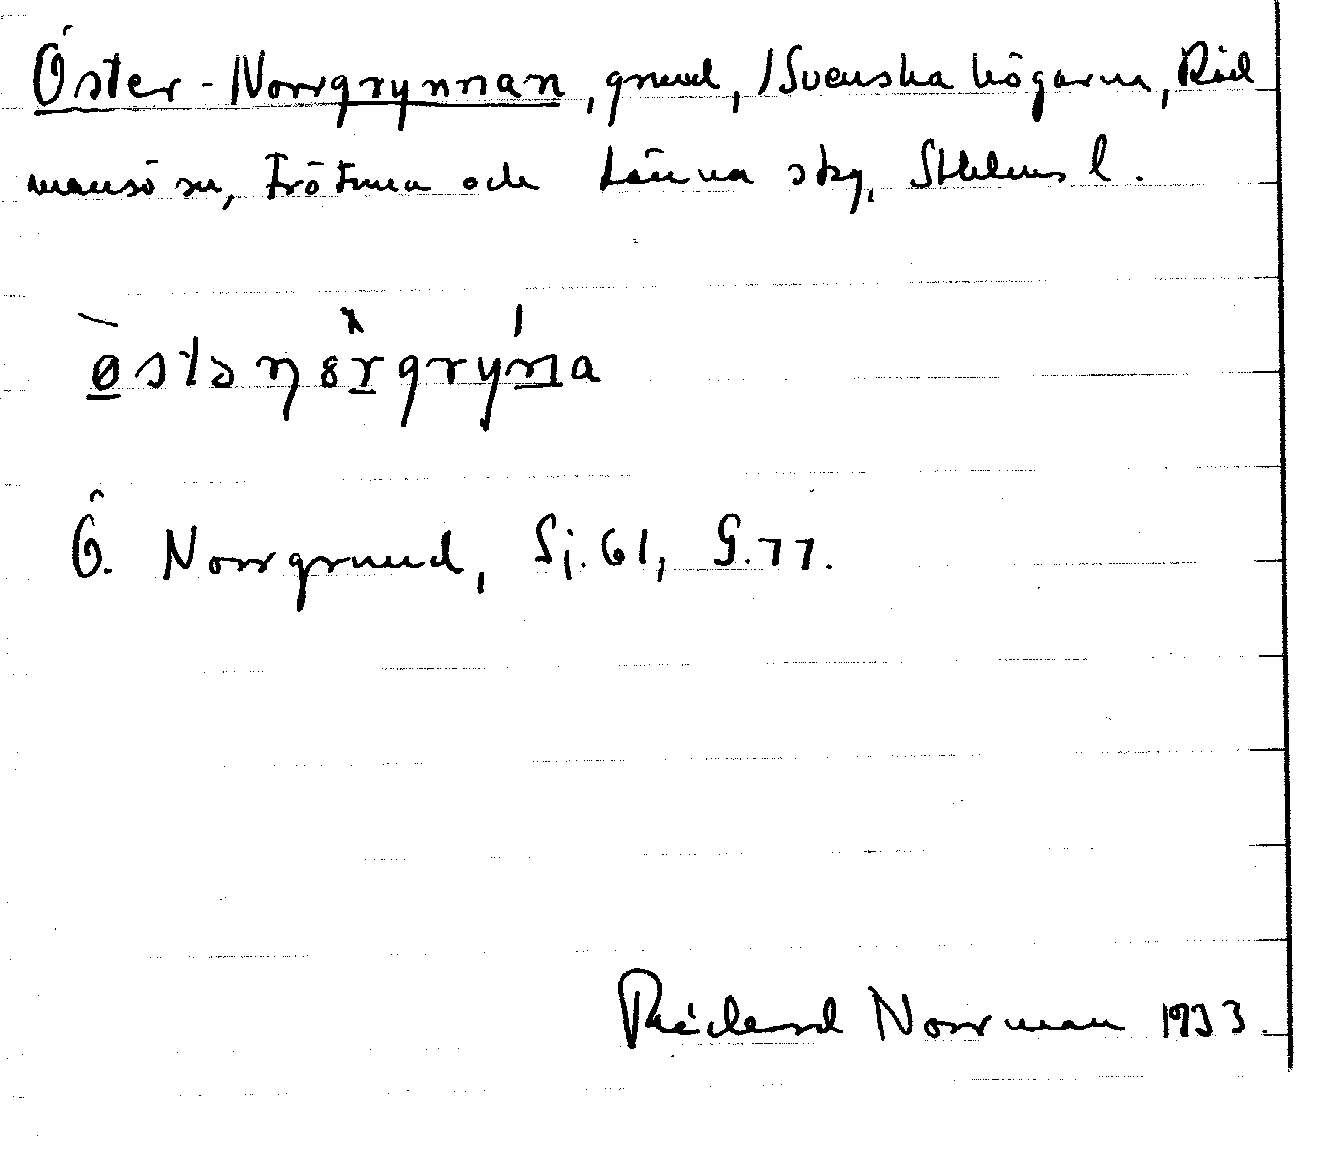 Öster-Norrgrynnan, grund, Svenska högarna, Råd
mansö sn, Frötuna och Länna skg, Sthlms l.
Ö. Norrgrund, Sj. 61, G. 77.
Rickard Norrman 1933.